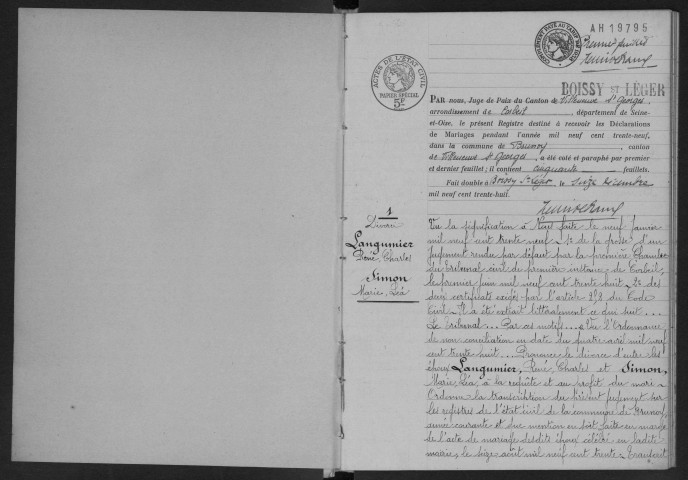 AH 19795
Premier feuillet
COMPLÉMENT PAYÉ AU TIMBRE
ACTES DE L'ÉTAT CIVIL
PAPIER SPÉCIAL
5F
BOISSY ST LÉGER
PAR nous, Juge de Paix du Canton de Villeneuve St Georges,
arrondissement de Corbeil, département de Seine-
et-Oise, le présent Registre destiné à recevoir les Déclarations
de Mariages pendant l'année mil neuf cent trente-neuf,
dans la commune de Brunoy, canton
de Villeneuve St Georges, a été coté et paraphé par premier
et dernier feuillet; il contient cinquante feuillets.
Fait double à Boissy St Léger, le Seize décembre
mil neuf cent trente-huit.
1
Divorce
Langumier
René, Charles
Simon
Marie, Léa
Vu la signification à Nous faite le neuf janvier
mil neuf cent trente neuf = 1° de la grosse d'un
jugement rendu par défaut par la première Chambre
du Tribunal civil de première instance, de Corbeil,
le premier juin mil neuf cent trente huit = 2° des
deux certificats exigés par l'article 252 du Code
Civil = Il a été extrait littéralement ce qui suit ....
Le Tribunal ... Par ces motifs ... Vu l'Ordonnance
de non conciliation en date du quatre avril mil neuf
cent trente huit ... Prononce le divorce d'entre les
époux Langumier, René, Charles et Simon,
Marie, Léa, à la requête et au profit du mari =
Ordonne la transcription du présent jugement sur
les registres de l'état civil de la commune de Brunoy,
année courante et que mention en soit faite en marge
de l'acte de mariage desdits époux célébré en ladite
mairie, le seize août mil neuf cent trente = Transcrit